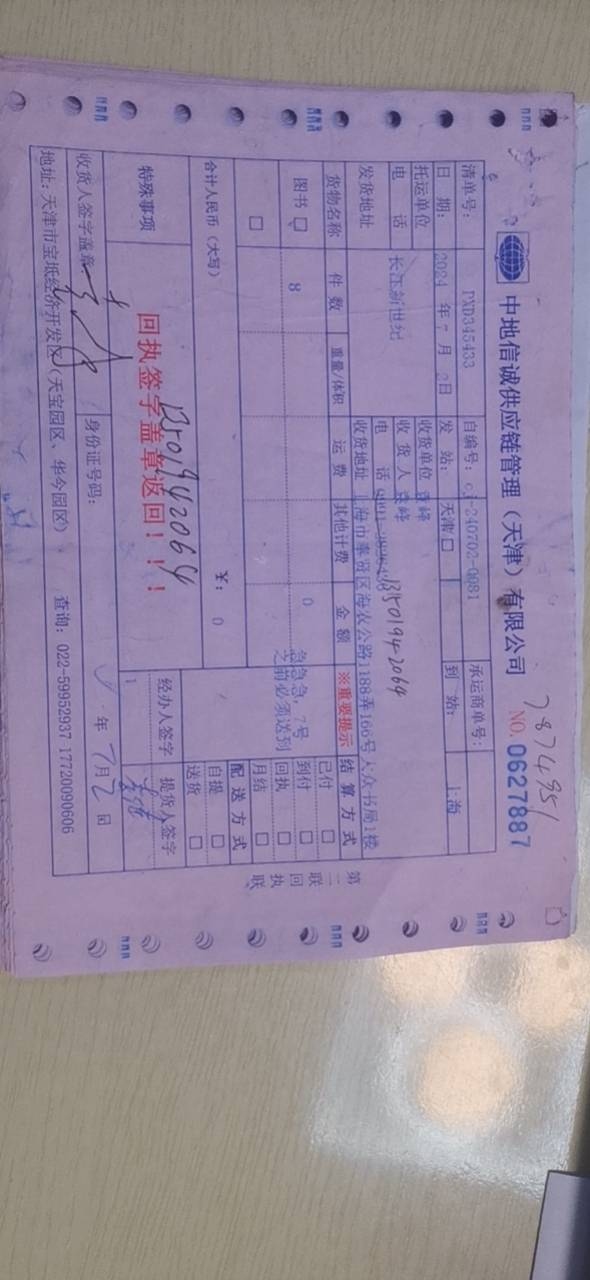 7877495/
中地信诚供应链管理（天津）有限公司 NO. 0627887
清单号： PXD345433 自编号：cj-240702-0081 承运商单号：
日 期： 2024 年 7 月 2日 发 站： 天津 到 站： 上海
托运单位 收货单位 峰
电 话 长江新世纪 收 货 人 峰
电 话 13501942064
发货地址 收货地址 上海市奉贤区海农公路1188弄166号大众书局1楼
货物名称 件 数 重量/体积 运 费 其他计费 金 额 ※重要提示 结 算 方 式
图书 8 0 急急急，7号之前必须达到
已付
到付
回执
月结
配 送 方 式
自提
送货
合计人民币（大写） ￥： 0
特殊事项 回执签字盖章返回！！！
13501942064
经办人签字 提货人签字
收货人签字盖章 身份证号码： 年 7月2日
地址：天津市宝坻经济开发区（天宝园区、华今园区） 查询：022-59952937 17720090606
第二联 回执联